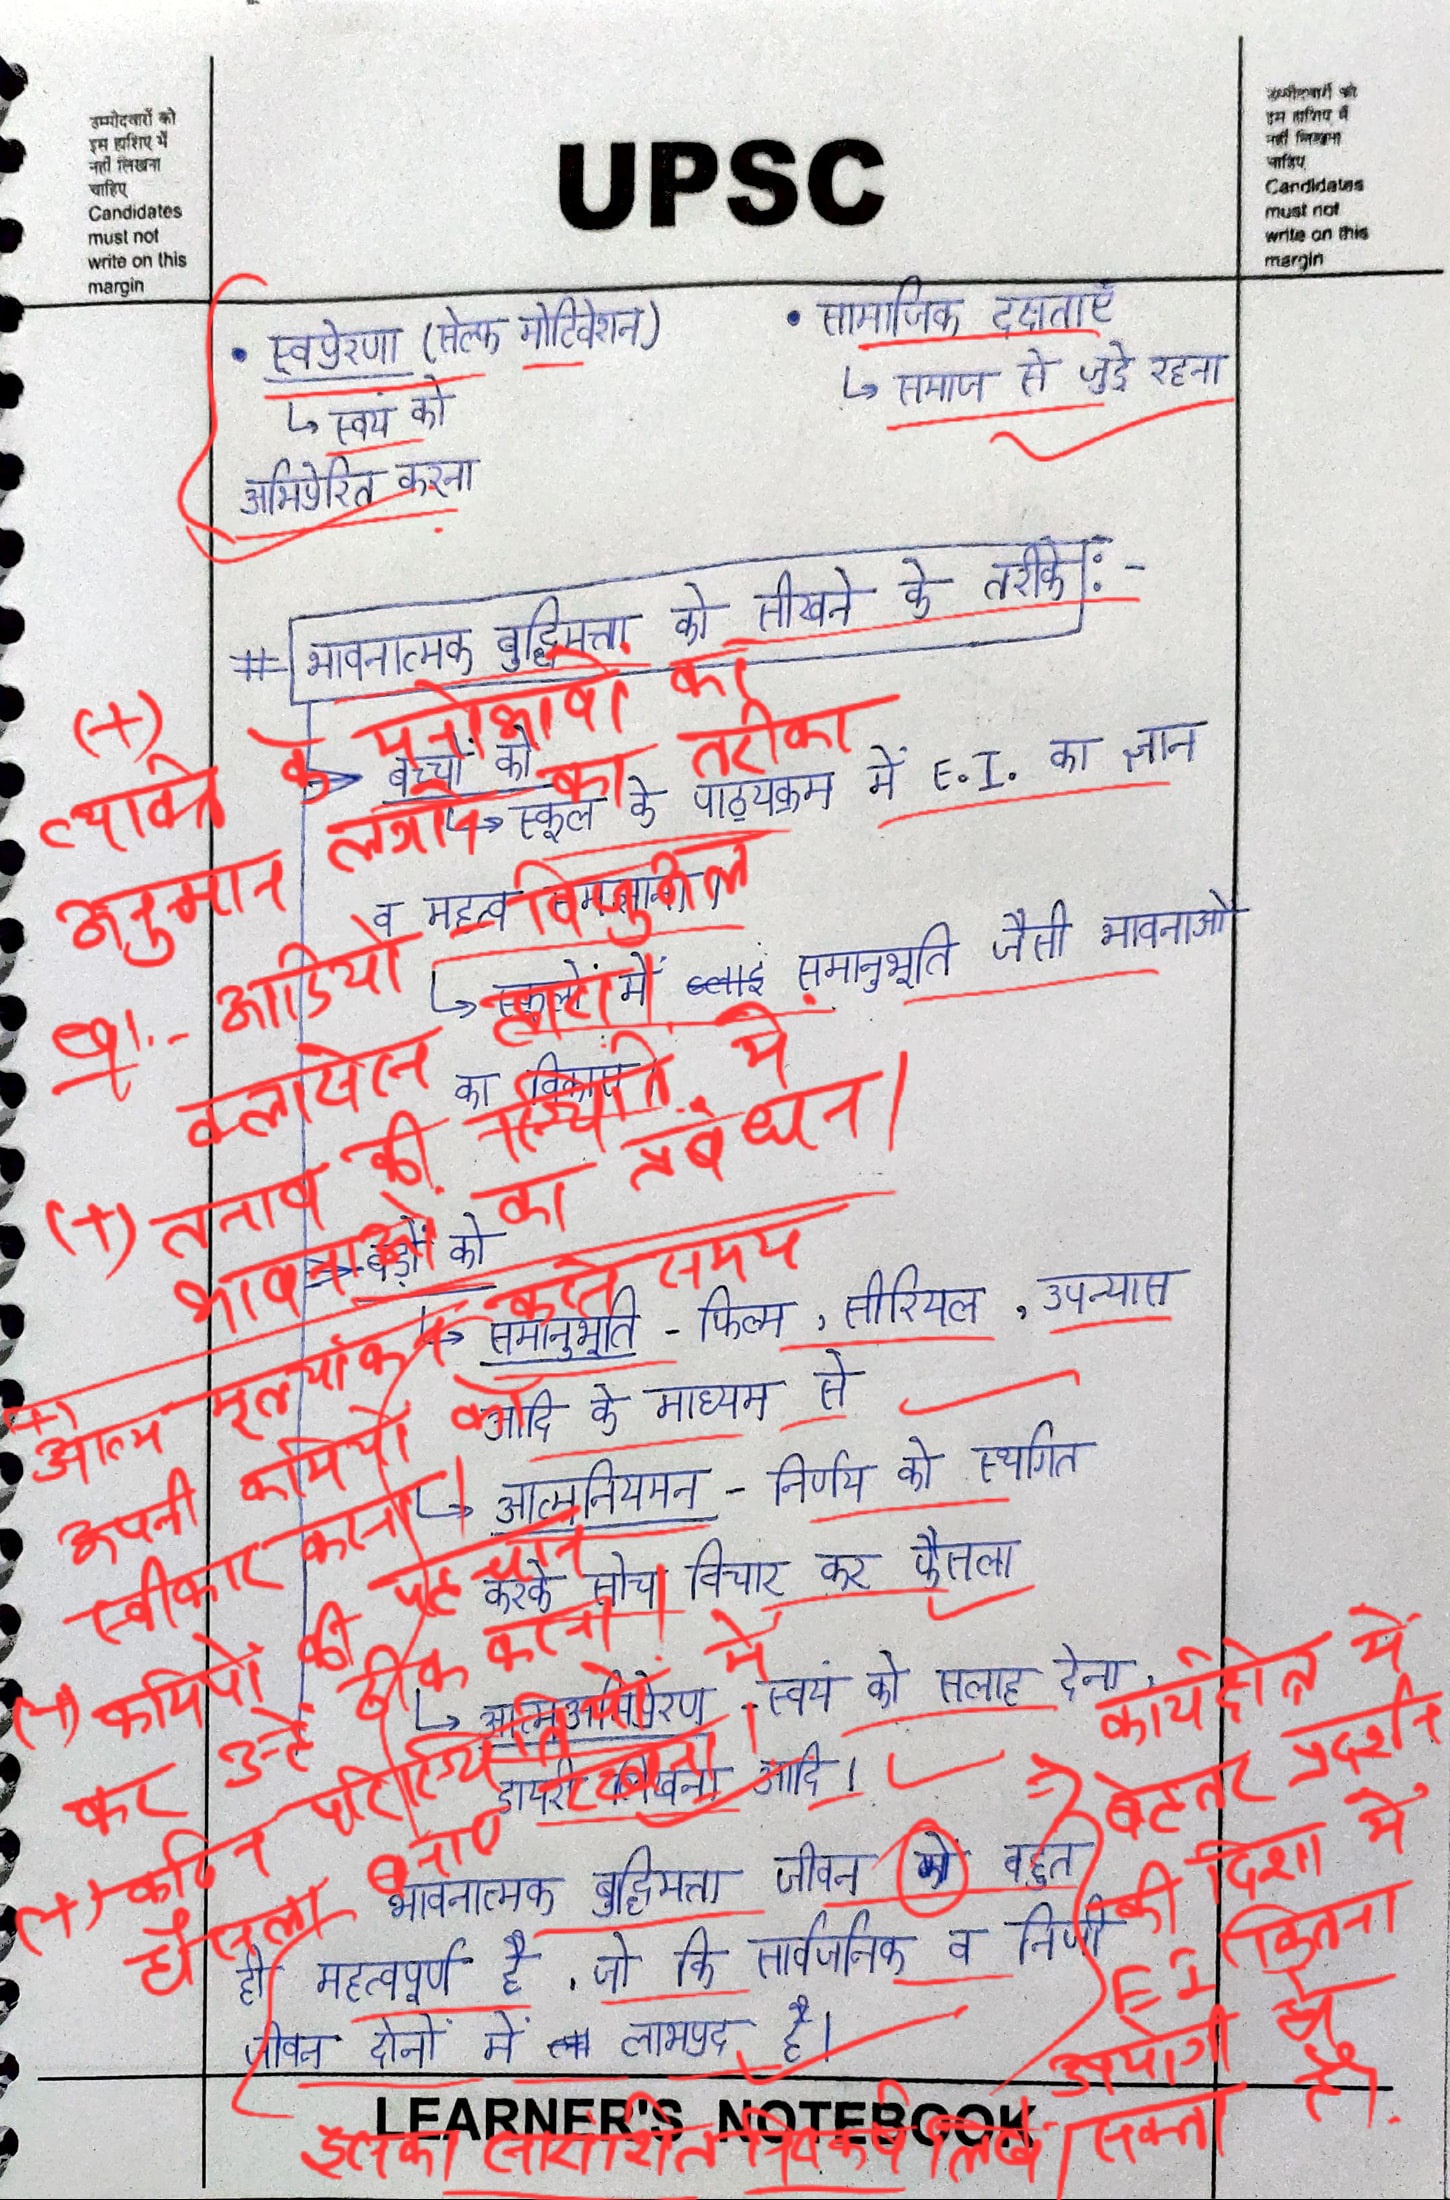 उम्मीदवारों को
इस हाशिए में
नहीं लिखना
चाहिए
Candidates
must not
write on this
margin
UPSC
उम्मीदवारों को
इस हाशिए में
नहीं लिखना
चाहिए
Candidates
must not
write on this
margin
• स्वप्रेरणा (सेल्फ मोटिवेशन)
↳ स्वयं को
अभिप्रेरित करना
• सामाजिक दक्षताएँ
↳ समाज से जुड़े रहना
# भावनात्मक बुद्धिमत्ता को सीखने के तरीके :-
बच्चों को
↳ स्कूल के पाठ्यक्रम में E.I. का ज्ञान
व महत्व
↳ स्कूलों में समानुभूति जैसी भावनाओ
का विकास
बड़ों को
↳ समानुभूति - फिल्म, सीरियल, उपन्यास
आदि के माध्यम से
↳ आत्मनियमन - निर्णय को स्थगित
करके सोच विचार कर फैसला
↳ आत्मअभिप्रेरण - स्वयं को सलाह देना,
डायरी लिखना आदि।
भावनात्मक बुद्धिमत्ता जीवन को बहुत
ही महत्वपूर्ण है, जो कि सार्वजनिक व निजी
जीवन दोनों में लाभप्रद है।
(+)
व्यक्ति के मनोभावों का
अनुमान लगाने का तरीका
आडियो विजुअल
क्लासेस द्वारा
(+) तनाव की स्थिति में
भावनाओं का प्रबंधन।
(+)
आत्म मूल्यांकन करते समय
अपनी कमियों को
स्वीकार करना।
(+) कमियों की पहचान
कर उन्हें ठीक करना।
(+) कठिन परिस्थितियों में
हौसला बनाए रखना।
→ कार्यक्षेत्र में
बेहतर प्रदर्शन
की दिशा में
EI कितना
उपयोगी हो
सकता है।
LEARNER'S NOTEBOOK
इसका सारांशित निष्कर्ष लिखें।